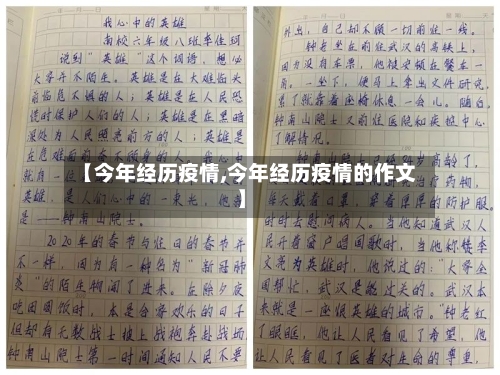 我心中的英雄
南校六年级八班李佳珂
说到“英雄”这个词语，想必
大家并不陌生。英雄是在大难临头
前临危不惧的人；英雄是在人民恐
慌时保护人们的人；英雄是在黑暗
深处为人民照亮前方的人；英雄是
在危难面前
就身
英雄，是人们心中的一束光，他
是——钟南山院士。
2020年的春节与往日的春节并
不一样，因为有一种名为“新冠肺
炎”的陌生物闯了进来。在除夕夜
吃团圆饭时，本是合家欢乐的日子
但却有无数战士披上战袍奔赴战场
钟南山院士第一时间通知人民不要
外出，自己却不顾一切前往一线。
钟老坐在前往武汉的高铁上，
因为没有车票，他被安顿在餐车一
角。一坐下，便马上拿出文件研究，
累了就靠着座椅休息一会儿。随后，
钟南山院士又前往医院和疾控中心
了解情况。
84岁高龄了，
治疗药物，
每天戴着口罩，穿着厚厚的防护服。
时时去慰问病人。当他知道武汉人
民开着窗户唱国歌时，当他称赞李
文亮为英雄时，他说过的：“大家全
国帮忙，武汉是能过关的。武汉本
来就是一座很英雄的城市。”钟老红
了眼眶，他让人民看见了希望，他
让人民看见了医者对生命的尊重，
【今年经历疫情,今年经历疫情的作文
】